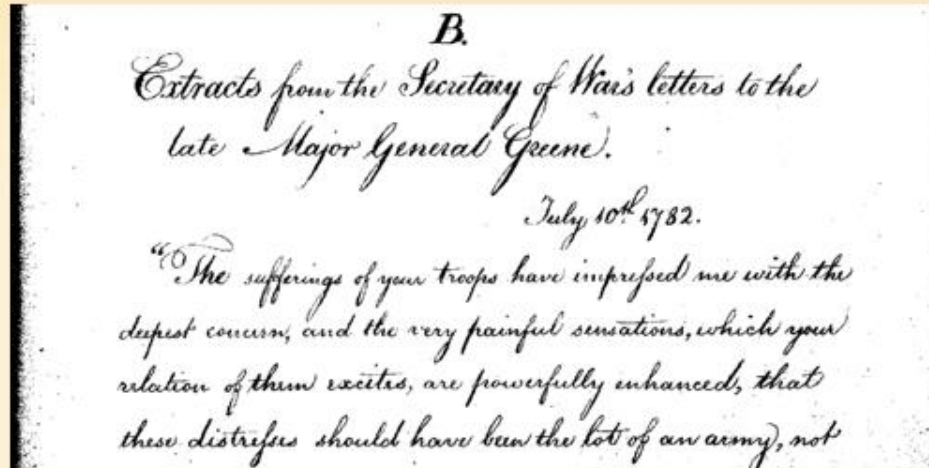 B.
Extracts from the Secretary of War's letters to the
late Major General Greene.
July 10th 1782.
"The sufferings of your troops have impressed me with the
deepest concern, and the very painful sensations, which your
relation of them excites, are powerfully enhanced, that
these distresses should have been the lot of an army, not